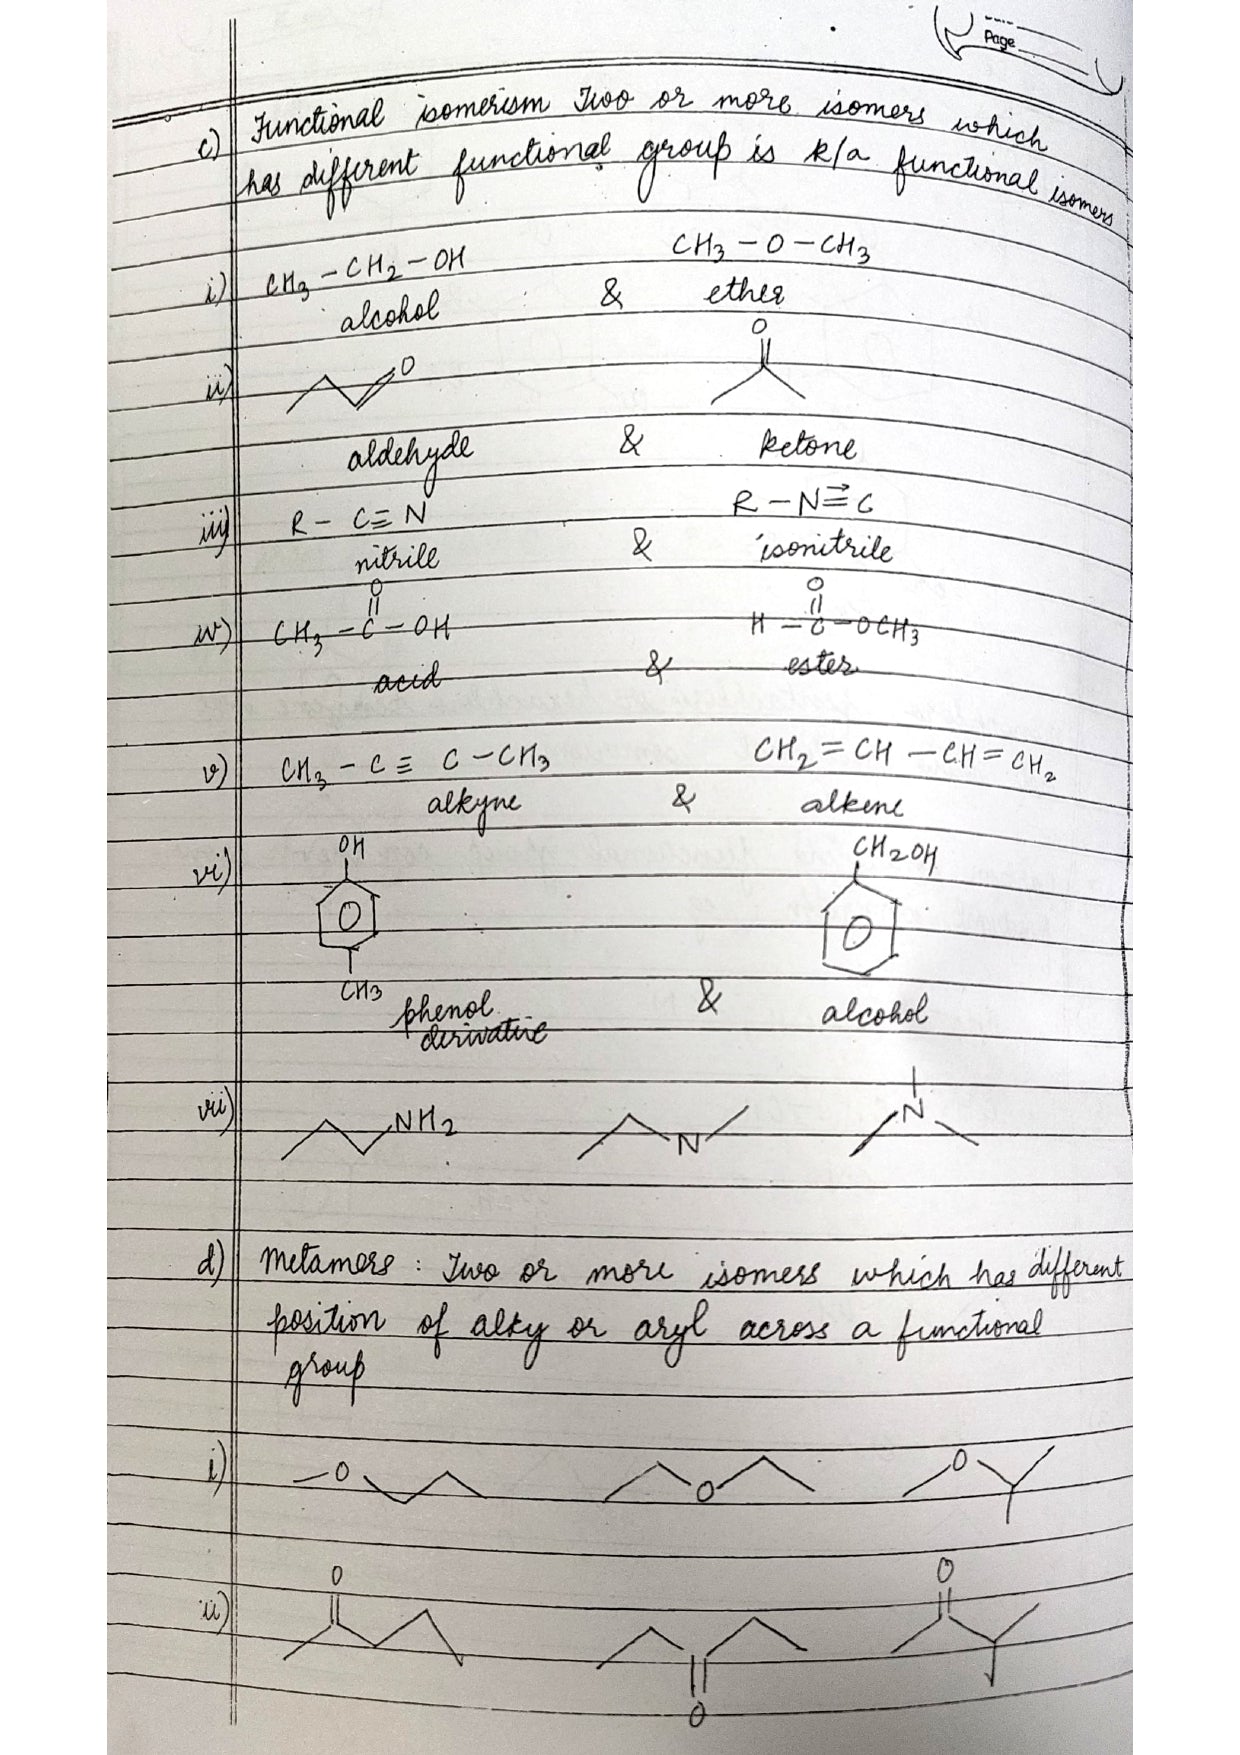 Page
c) Functional isomerism Two or more isomers which
has different functional group is k/a functional isomers
i) CH3 – CH2 – OH & CH3 – O – CH3
alcohol ether
ii) O O
aldehyde & ketone
iii) R – C≡N & R – N≡C
nitrile isonitrile
O O
iv) CH3 – C – OH & H – C – OCH3
acid ester
v) CH3 – C ≡ C – CH3 & CH2 = CH – CH = CH2
alkyne alkene
vi) OH CH2OH
CH3
phenol & alcohol
derivative
vii) NH2 N N
d) Metamers : Two or more isomers which has different
position of alky or aryl across a functional
group
i) O O O
ii) O O O